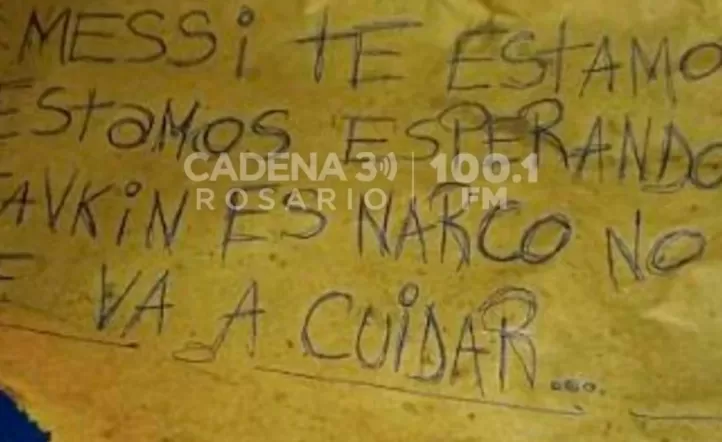 MESSI TE ESTAMO
ESTAMOS ESPERANDO
CADENA 3 100.1
ROSARIO FM
AVKIN ES NARCO NO
E VA A CUIDAR...